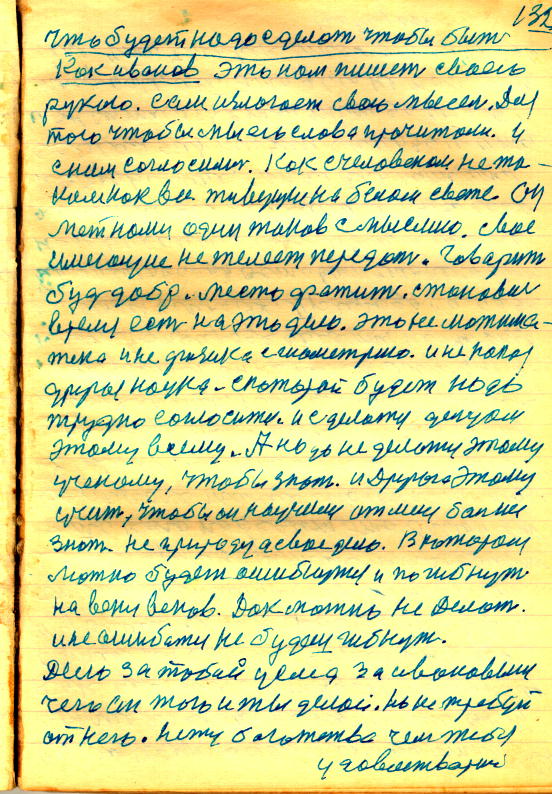 132
Что будет надо сделат чтобы быт
Как Иванов Это нам пишет своею
рукою. Сам излогает свою мысел. Для
того чтобы мы его слова прочитали. и
с ним согласилис. Как с человеком не та-
ким как все живущии на белом свете. Он
между нами один таков с мыслию. свое
имеющие не желает передат. Говарит
буд добр. место фатит. становис
время ест на это дело. Это не матима-
тика и не физика с геометрию. и не
другая наука. с которой будет надо
трудно согласитис. и сделатис
этому всему. А надо не делатис этому
ученому, чтобы знат. и другога этому
учит, чтобы он научился от меня
знат не природу а свое дело. В котором
можно будет ошибнутся и погибнут
на веки веков. Дак можно не делат.
и не ошибатся не будеш гибнут.
Дело за тобой целея за Ивановым
чего он того и ты делай. но не требуй
от него. нету богатства чем тебя
удовлетварит